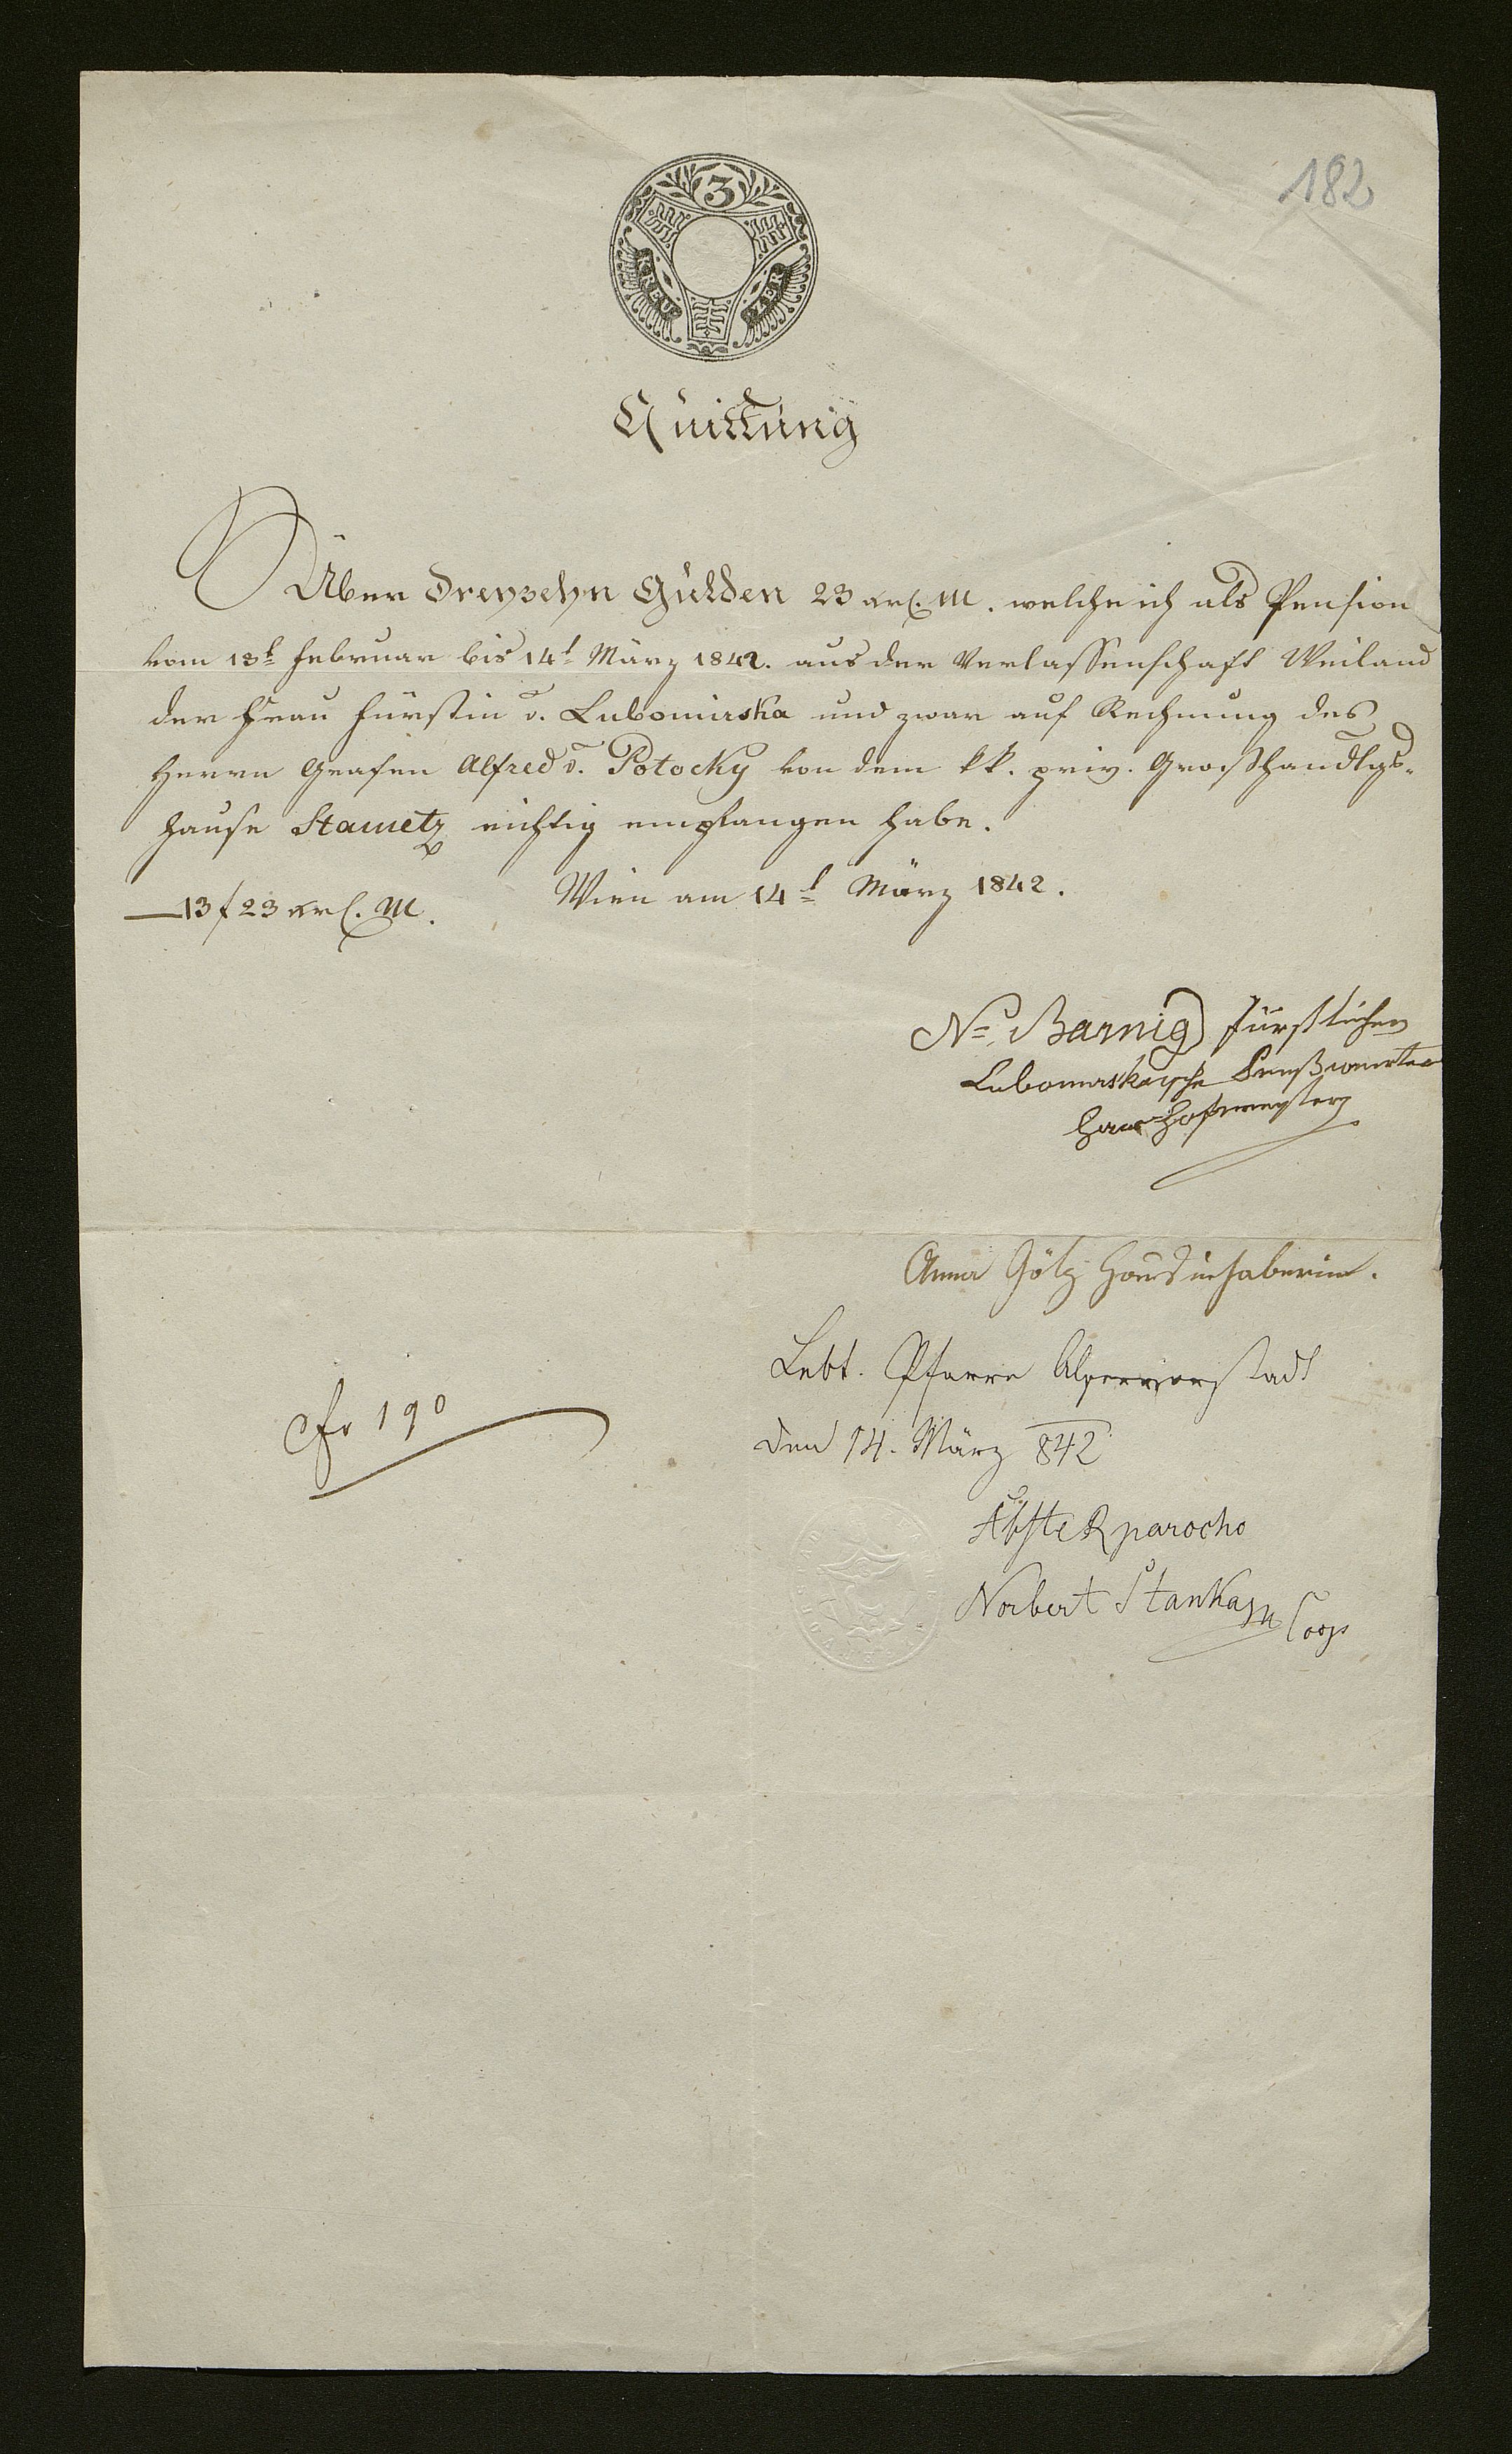 182
3
KREU ZER
Quittung
Über dreyzehn Gulden 23 xr C. M. welche ich als Pension
vom 13t Februar bis 14t März 1842. aus der Verlassenschaft Weiland
der Frau Fürstin v. Lubomirska und zwar auf Rechnung des
Herrn Grafen Alfred v. Potocky von dem kk. priv. Großhandlgs-
hause Stametz richtig empfangen habe.
Wien am 14t März 1842.
13 f 23 xr C. M.
Barnig fürstlichen
Lubomirskaische
Haus Hofmeister
Anna Götz Hausinhaberin.
Lebt. Pfarre Alservorstadt
den 14. März 842
fr 190
parocho
Norbert Stanka Coop